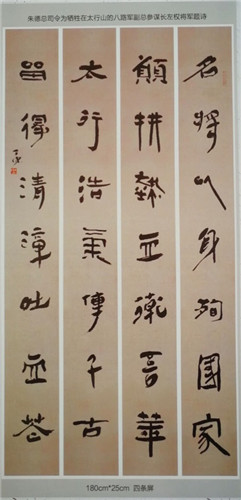 朱德总司令为牺牲在太行山的八路军副总参谋长左权将军题诗
名將以身殉國家
願拼熱血衛吾華
太行浩氣傳千古
留得清漳吐血花
180cm*25cm 四条屏